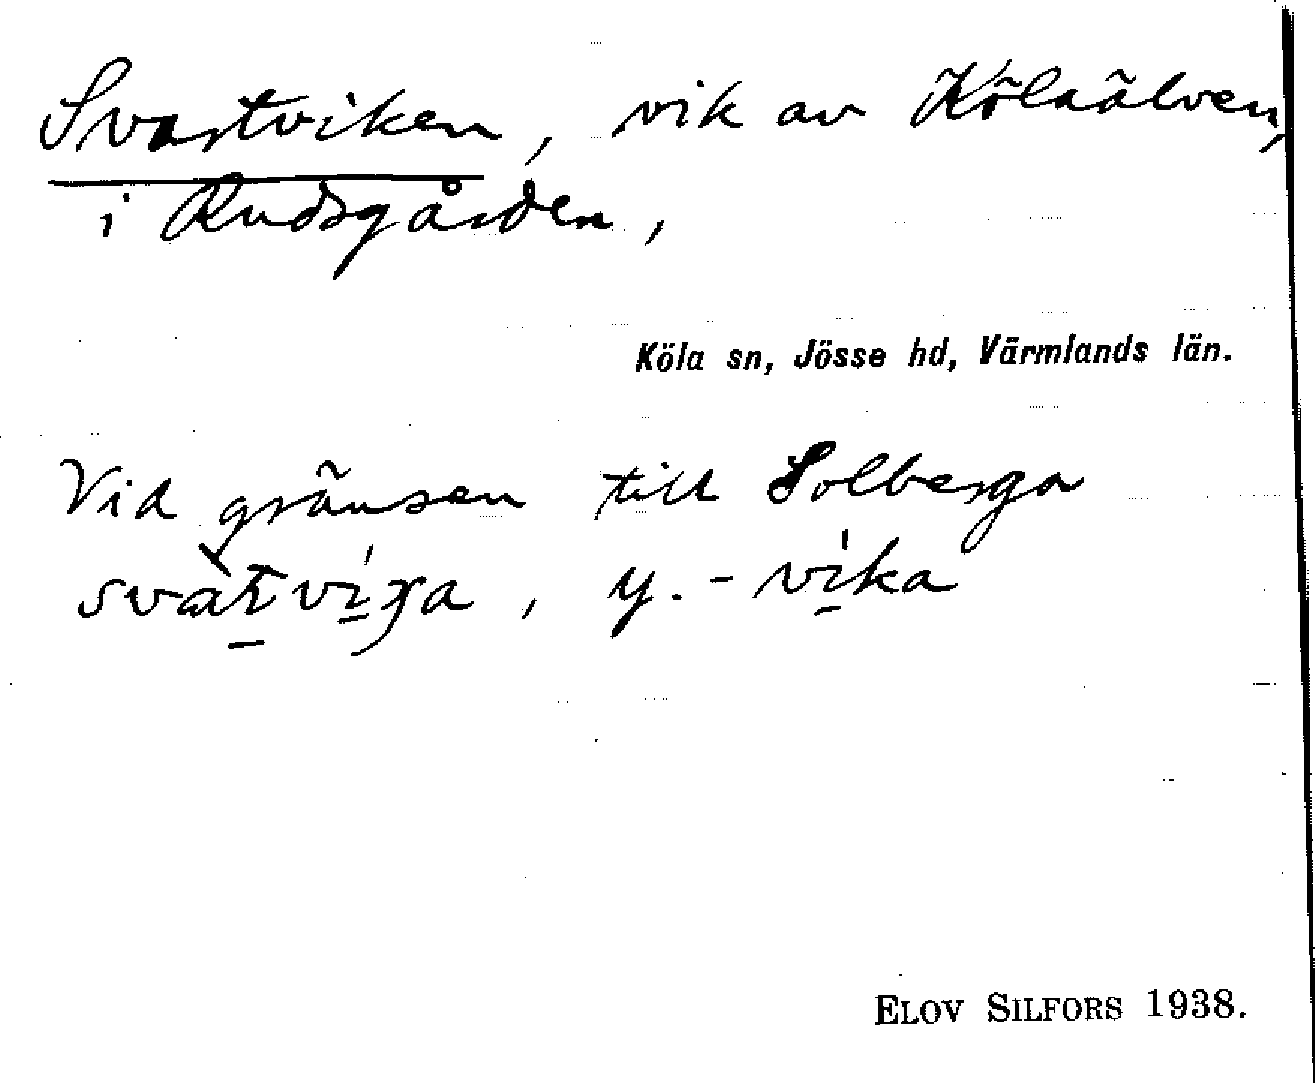 Svartviken, vik av Kölaälven,
i Rudsgården,
Köla sn, Jösse hd, Värmlands län.
Vid gränsen till Solberga
, y. - vika
ELOV SILFORS 1938.